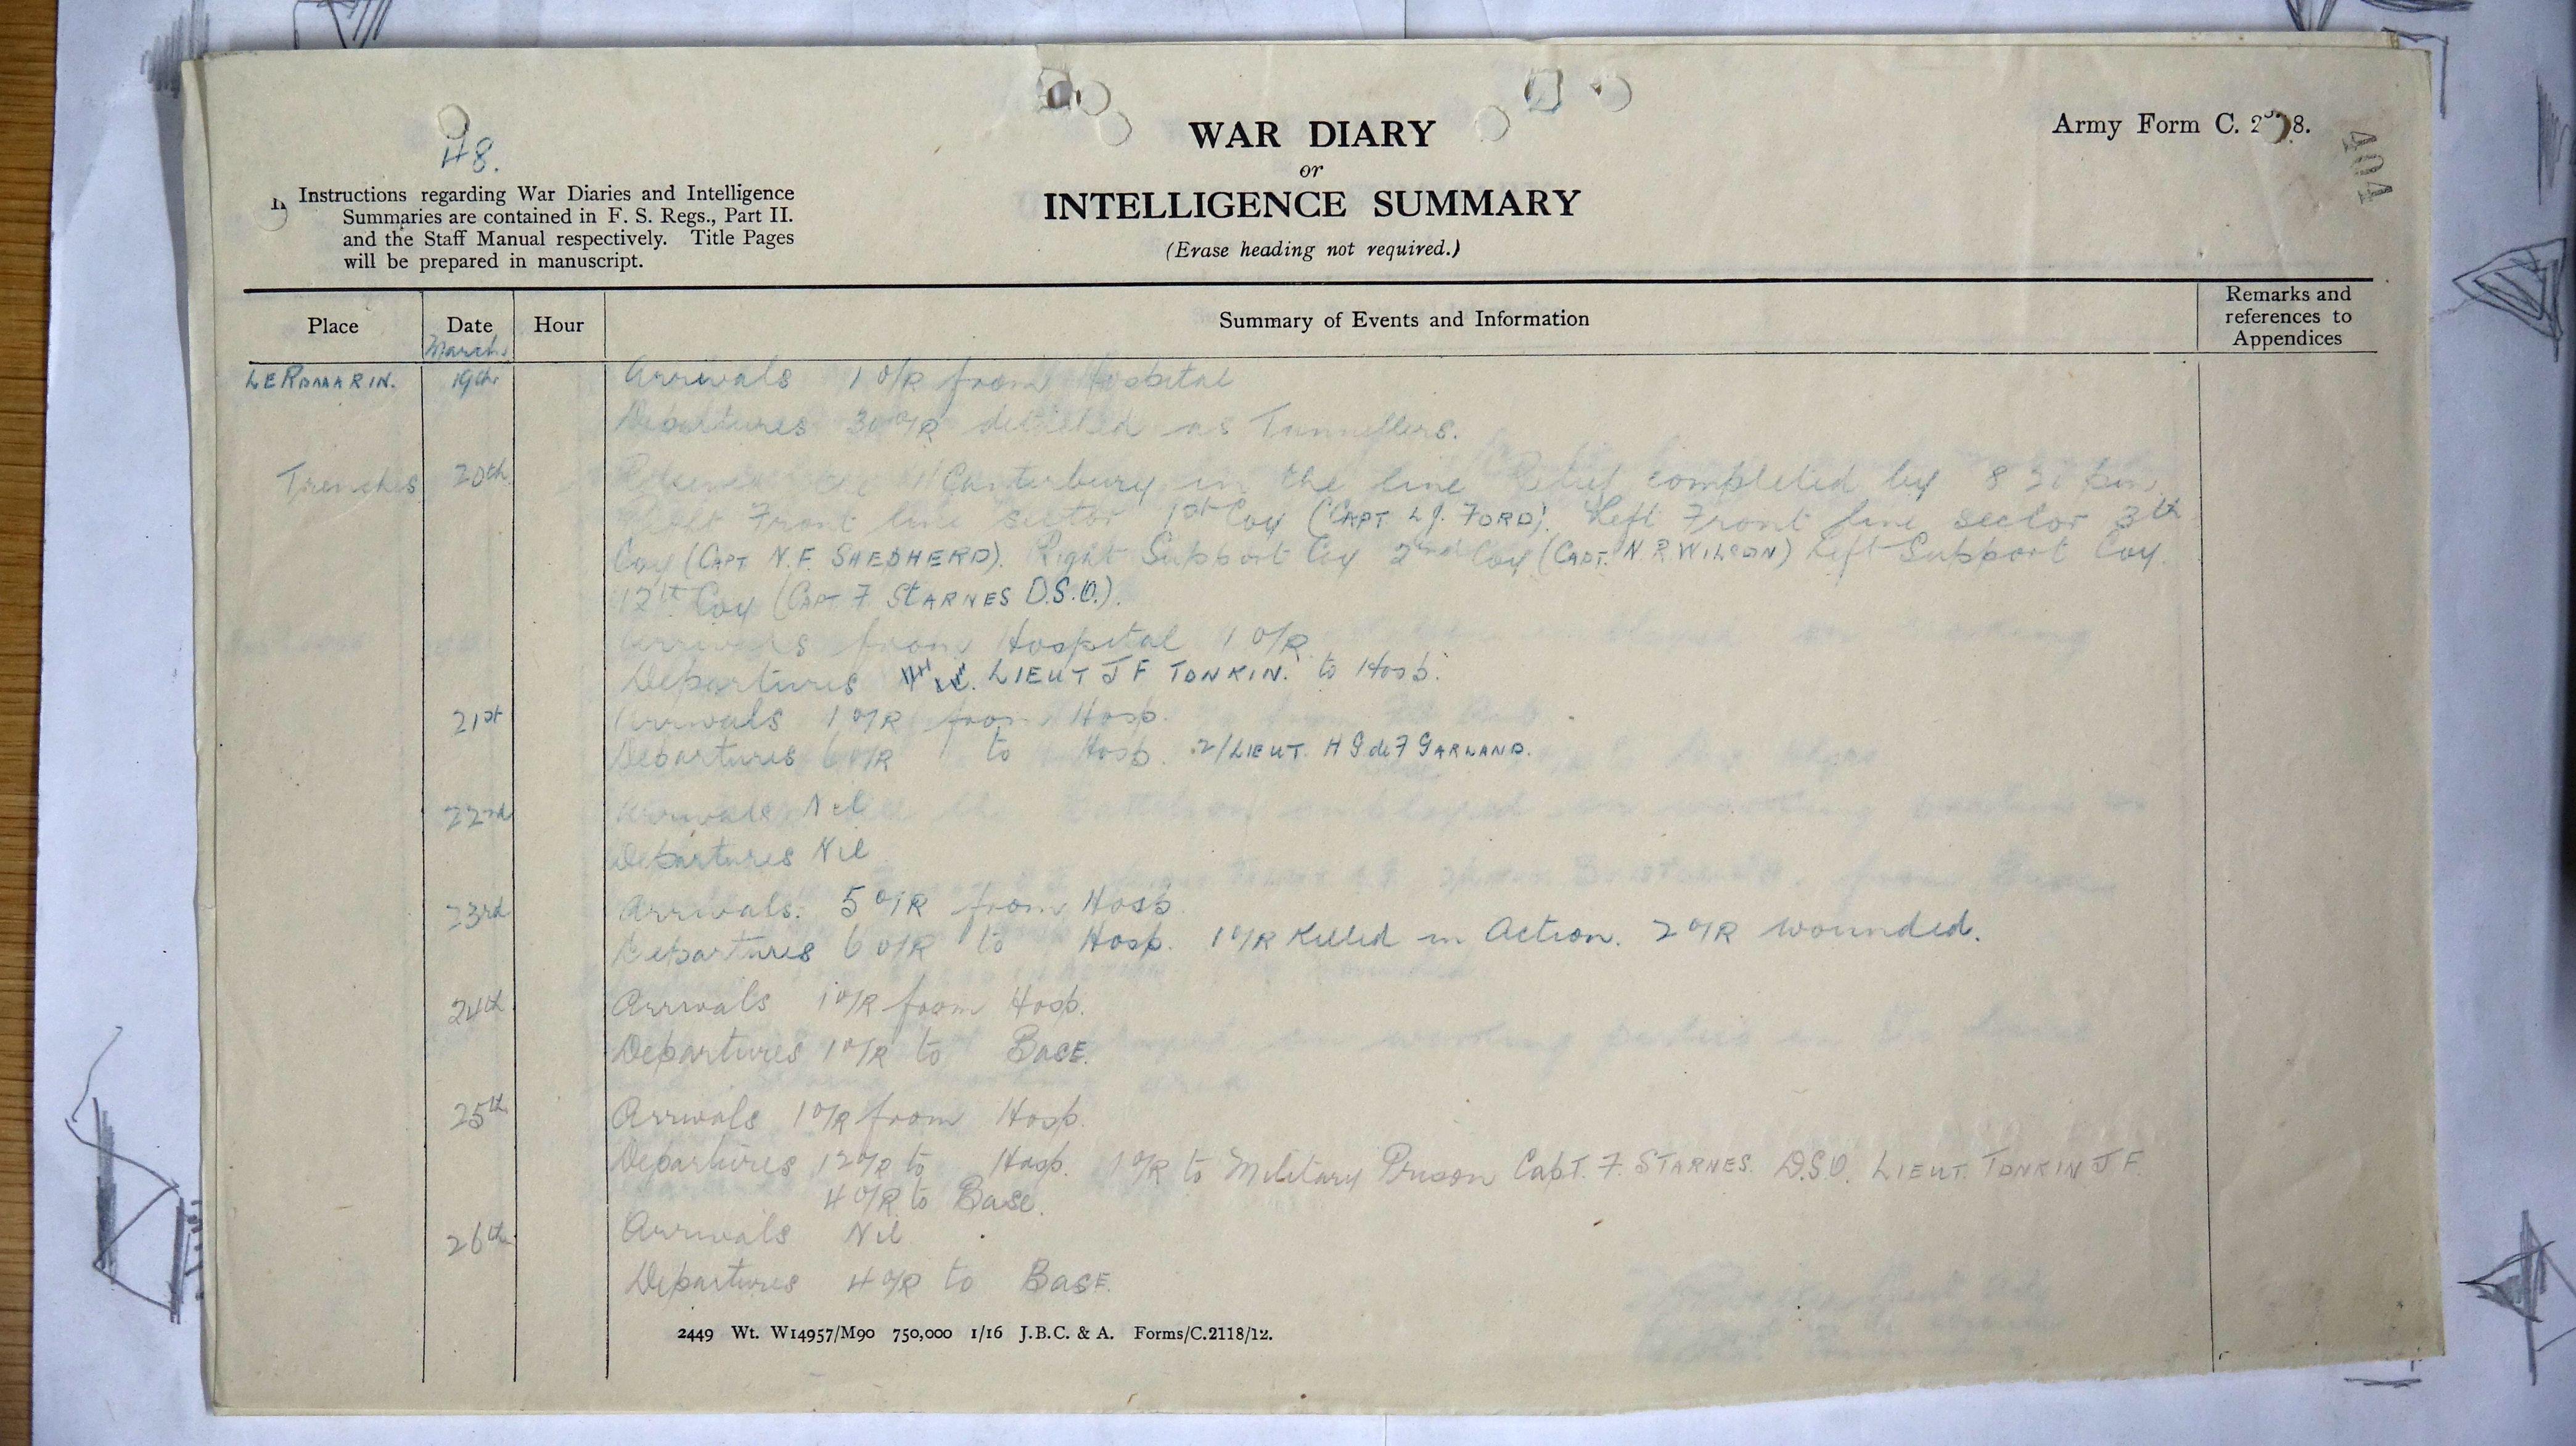 48.
Army Form C. 2118.
404
WAR DIARY
or
INTELLIGENCE SUMMARY
(Erase heading not required.)
Instructions regarding War Diaries and Intelligence
Summaries are contained in F. S. Regs., Part II.
and the Staff Manual respectively. Title Pages
will be prepared in manuscript.
Place Date Hour Summary of Events and Information Remarks and references to Appendices
March
LE ROMARIN. 19th Arrivals 1 O/R from Hospital
Departures 30 O/R detailed as Tunnellers.
Trenches 20th Relieved Canterbury in the line Relief completed by 8 30 pm
Front line sector 1st Coy (CAPT L J. FORD). Left Front line sector 3th
Coy (CAPT N. F. SHEPHERD). Right Support Coy 2nd Coy (CAPT. N. R. WILSON) Left Support Coy.
12th Coy (CAPT F STARNES D.S.O.).
Arrivals from Hospital 1 O/R
Departures LIEUT J F TONKIN. to Hosp.
21st Arrivals 1 O/R from Hosp.
Departures 6 O/R to Hosp. 2/LIEUT. H G de F GARLAND.
22nd Arrivals Nil
Departures Nil
23rd Arrivals. 5 O/R from Hosp
Departures 6 O/R to Hosp. 1 O/R Killed in Action. 2 O/R wounded.
24th Arrivals 1 O/R from Hosp.
Departures 1 O/R to BASE.
25th Arrivals 1 O/R from Hosp.
Departures 12 O/R to Hosp. 1 O/R to Military Prison Capt. F. STARNES. D.S.O. LIEUT. TONKIN J F.
4 O/R to Base.
26th Arrivals Nil
Departures 4 O/R to BASE.
2449 Wt. W14957/M90 750,000 1/16 J.B.C. & A. Forms/C.2118/12.